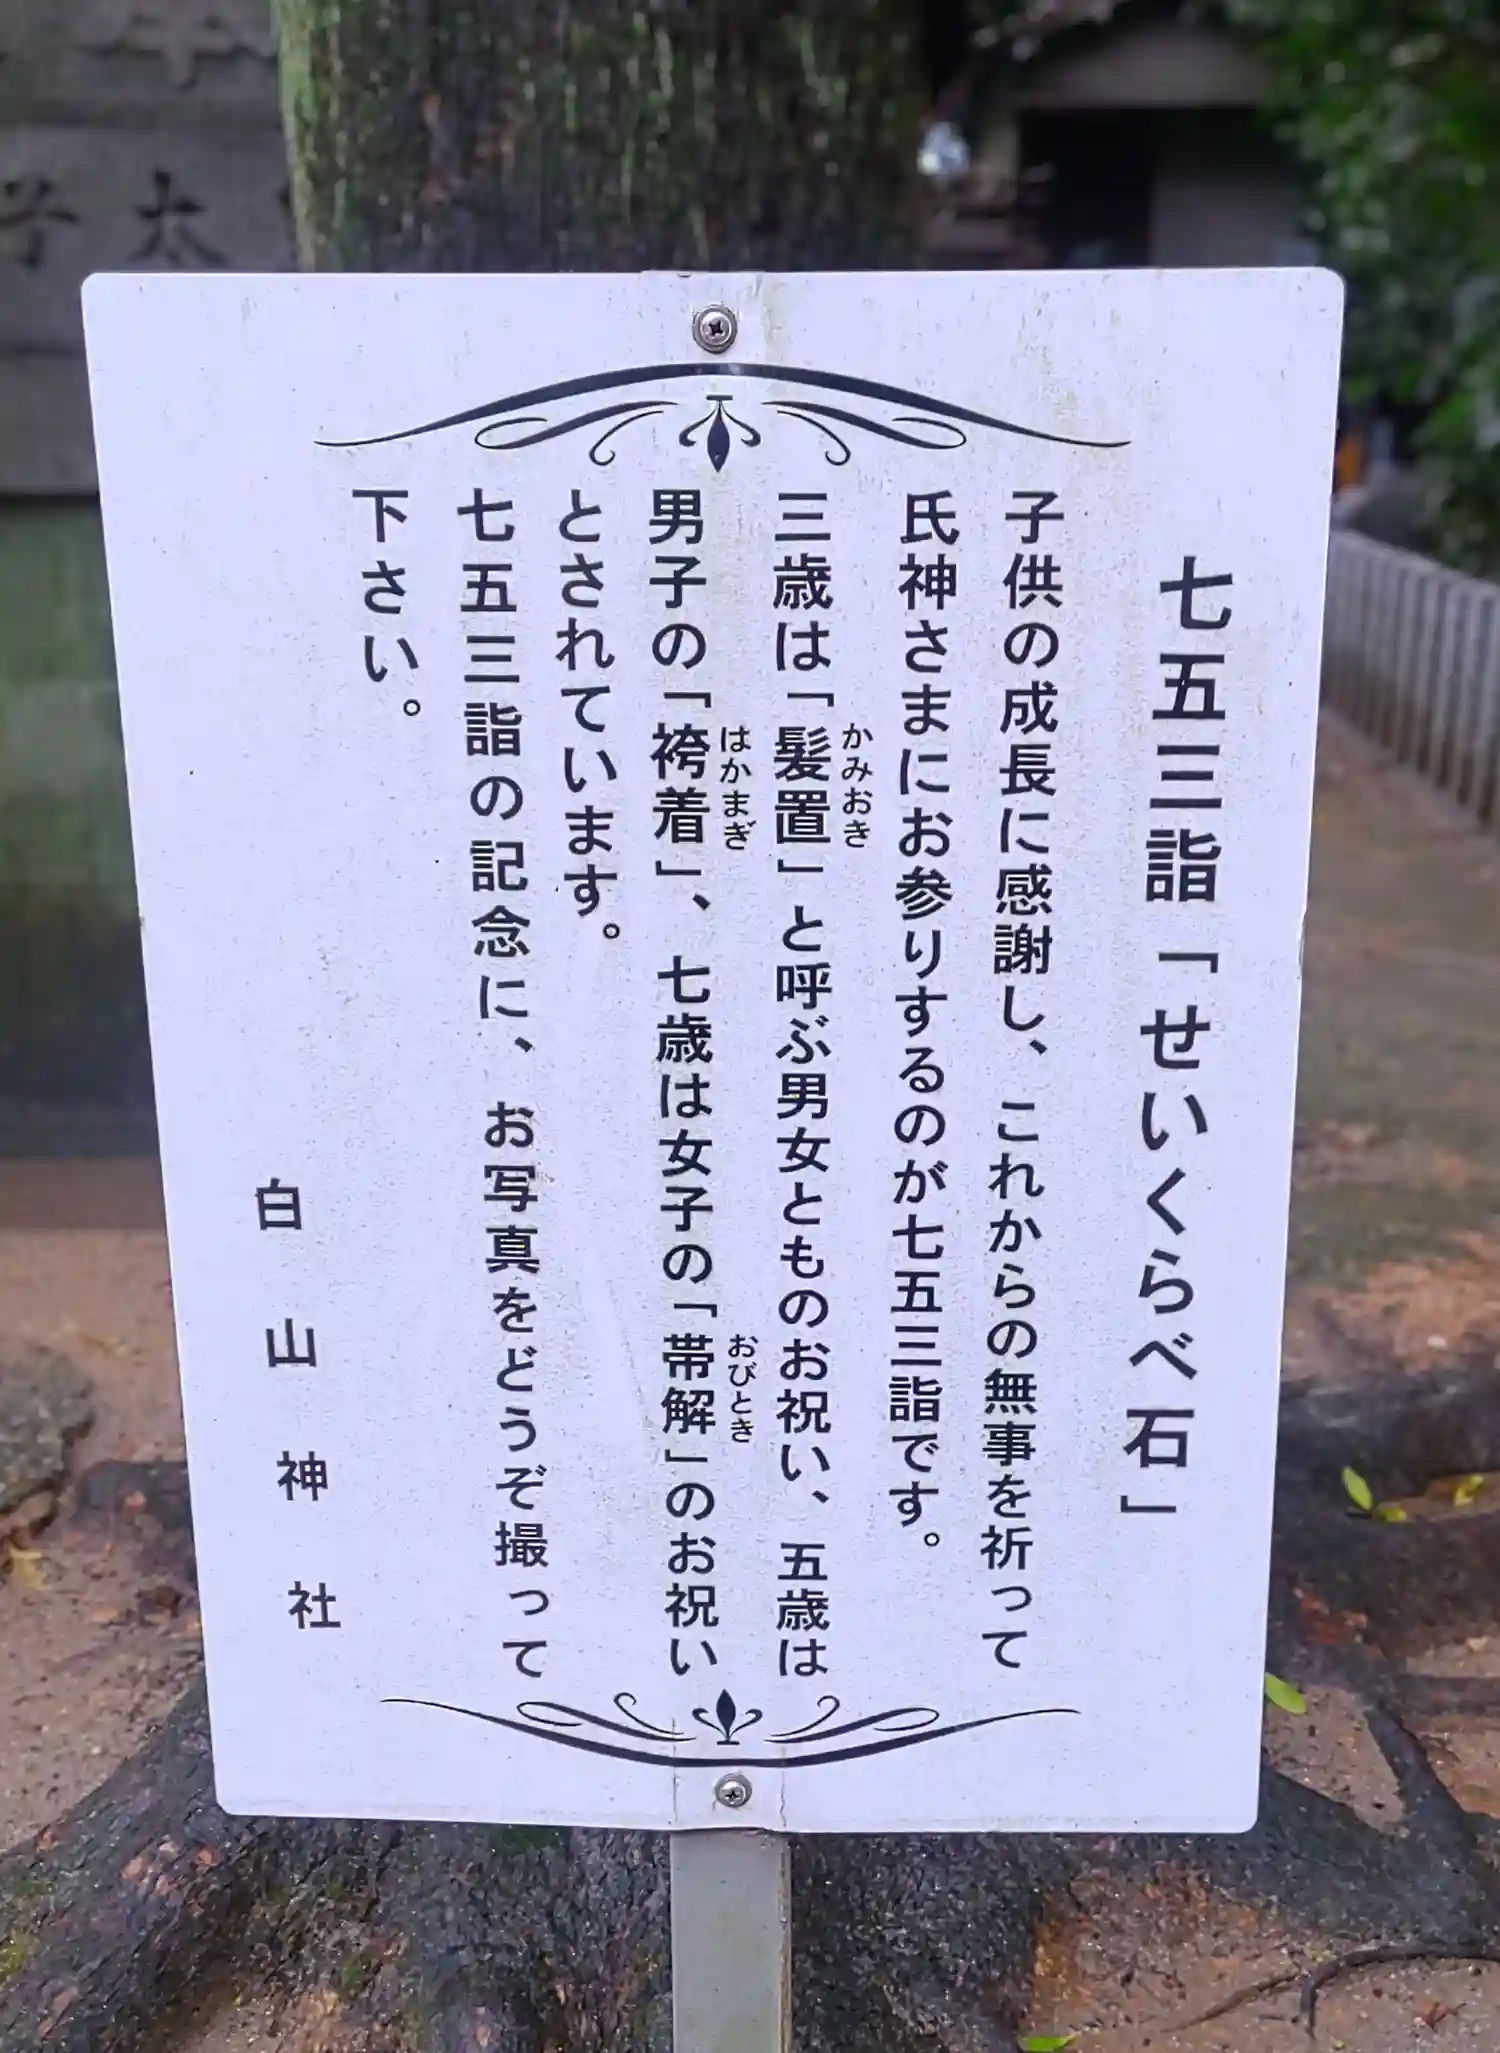 七五三詣「せいくらべ石」
子供の成長に感謝し、これからの無事を祈って
氏神さまにお参りするのが七五三詣です。
かみおき
三歳は「髪置」と呼ぶ男女とものお祝い、五歳は
はかまぎ
おびとき
男子の「袴着」、七歳は女子の「帯解」のお祝い
とされています。
七五三詣の記念に、お写真をどうぞ撮って
下さい。
白山神社